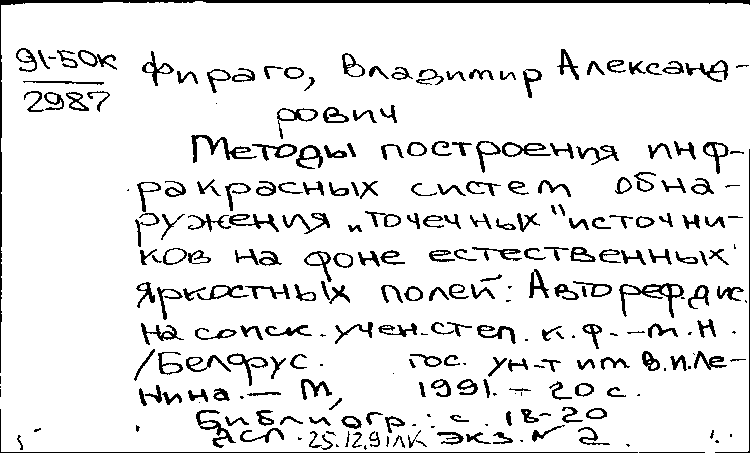 91-50К Фираго, Владимир Александ-
2987 рович
Методы построения инф-
ракрасных систем обна-
ружения „точечных" источни-
ков на фоне естественных
яркостных полей: Автореф.дис.
на соиск. учен.степ. к.ф.-м.н.
/Белорус. гос. ун-т им В.И.Ле-
нина. — М, 1991. - 20 с.
Библиогр.: с. 18-20
асп. 25.12.91 ЛК экз. № 2.